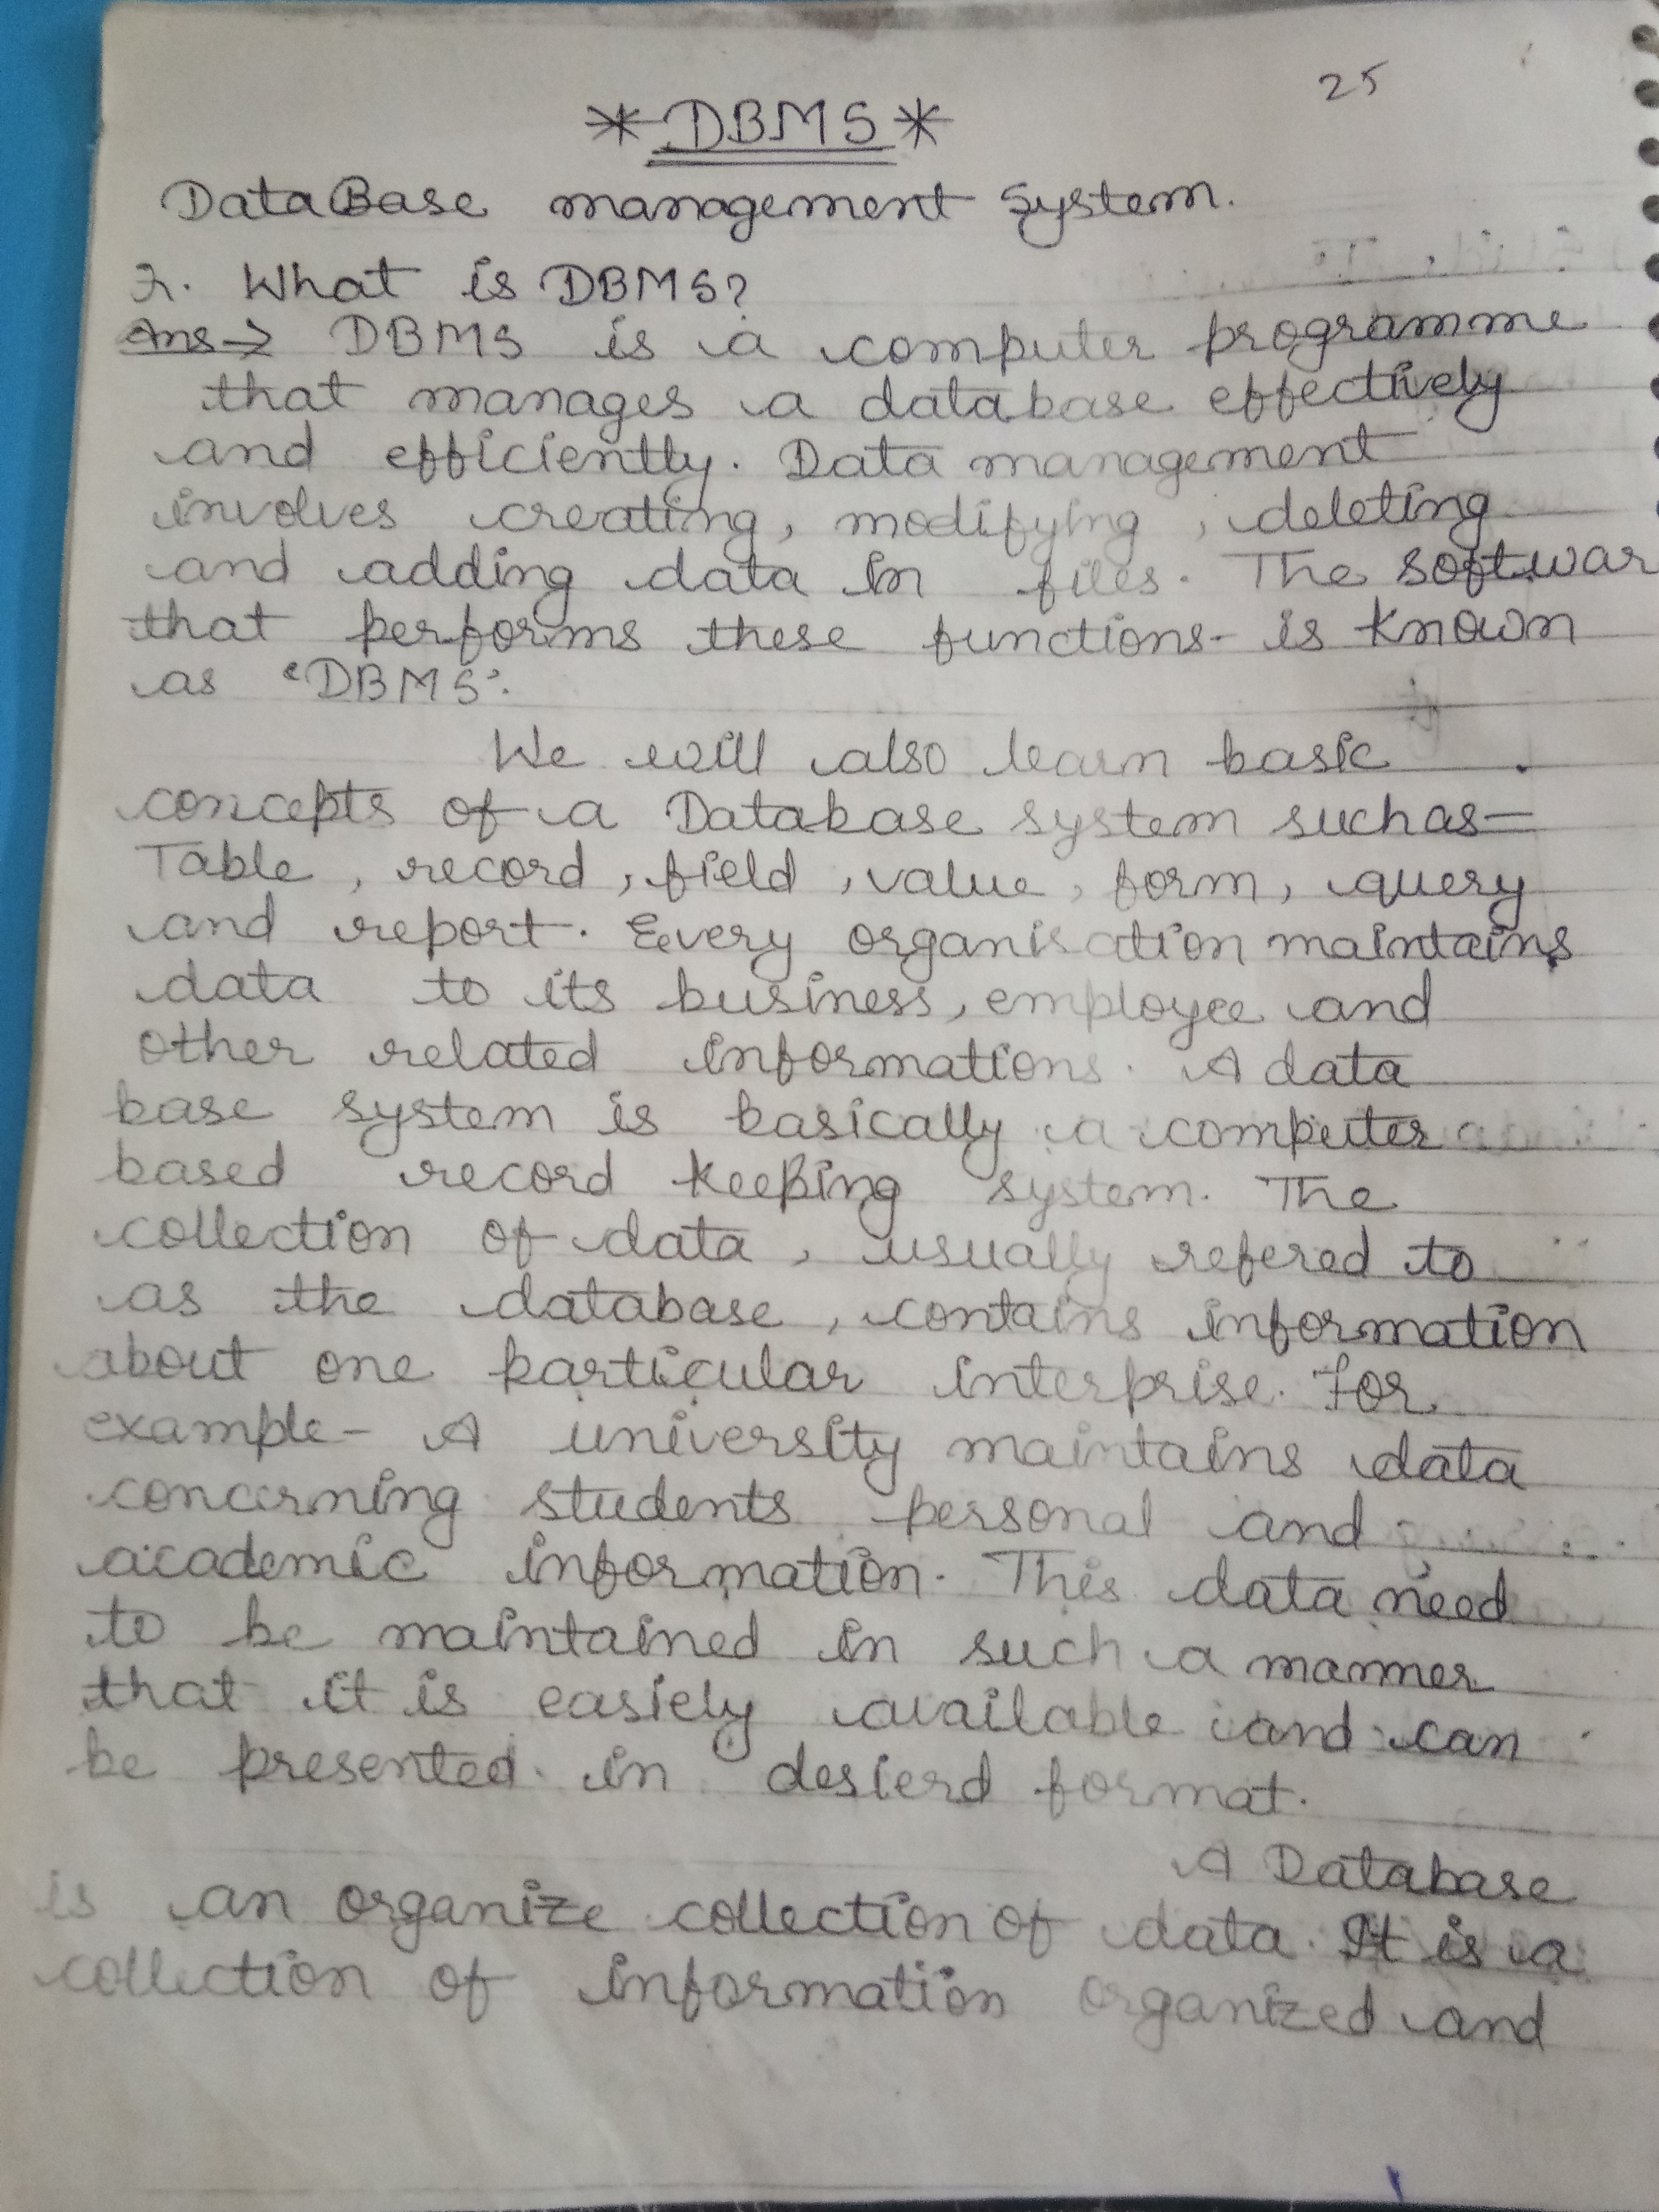 25
* DBMS *
DataBase management System.
1. What is DBMS?
Ans→ DBMS is a computer programme
that manages a database effectively
and efficiently. Data management
involves creating, modifying, deleting
and adding data in files. The softwar
that performs these functions- is known
as 'DBMS'.
We will also learn basic
concepts of a Database system such as-
Table, record, field, value, form, query
and report. Every organisation maintains
data to its business, employee and
other related informations. A data
base system is basically a computer
based record keeping system. The
collection of data, usually refered to
as the database, contains information
about one particular interprise. For
example- A university maintains data
concerning students personal and
academic information. This data need
to be maintained in such a manner
that it is easiely available and can
be presented in desierd format.
A Database
is an organize collection of data. It is a
collection of information organized and